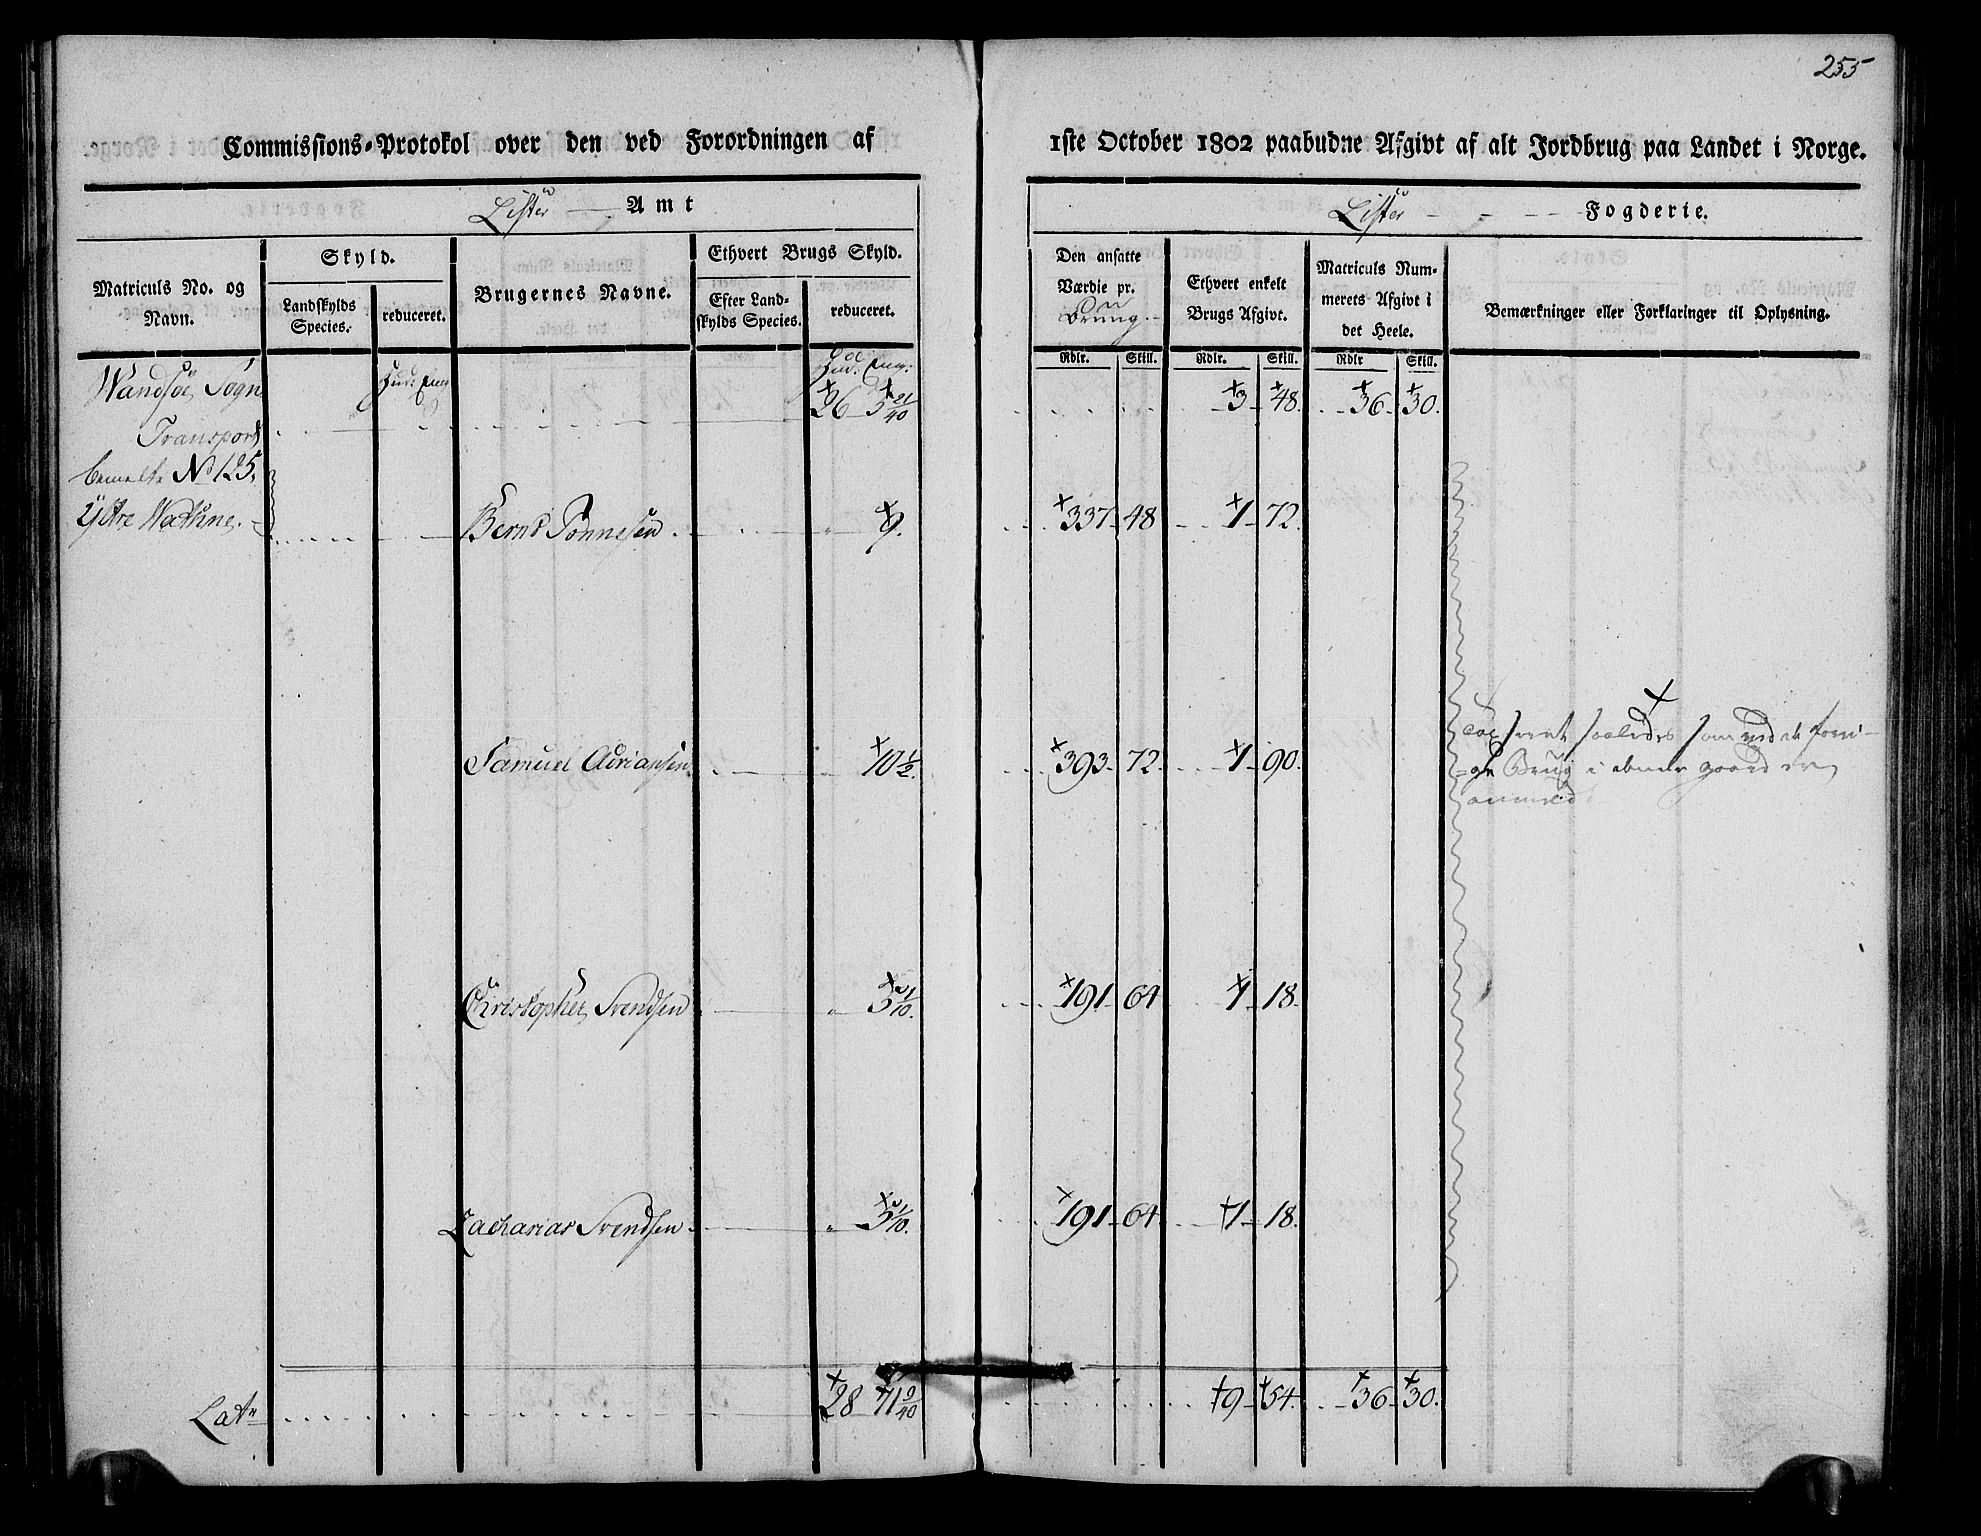 255
Commissions-Protokol over den ved Forordningen af 1ste October 1802 paabudne Afgivt af alt Jordbrug paa Landet i Norge.
Lister Amt
Lister Fogderie.
Matriculs No. og Navn.
Skyld.
Landskylds Species.
reduceret.
Brugernes Navne.
Ethvert Brugs Skyld.
Efter Land-skylds Species.
reduceret.
Den ansatte Værdie pr. Brug.
Ethvert enkelt Brugs Afgivt.
Matriculs Num-merets Afgivt i det Heele.
Bemærkninger eller Forklaringer til Oplysning.
Rdlr. Skill. Rdlr. Skill. Rdlr Skill.
Wandsøe Sogn
Transport 26 5 21/40 3 48. 36 30.
bemelte No 125,
Ytre Wathne. Bernt Tønnesen 9. 337 48 1 72.
Samuel Adriansen 10 1/2 393 72 1 90.
Brug i
Christopher Svendsen 5 1/10. 191 64 1 18.
Zacharias Svendsen 5 1/10. 191 64 1 18.
Lats 28 71 9/40 9 54. 36 30.